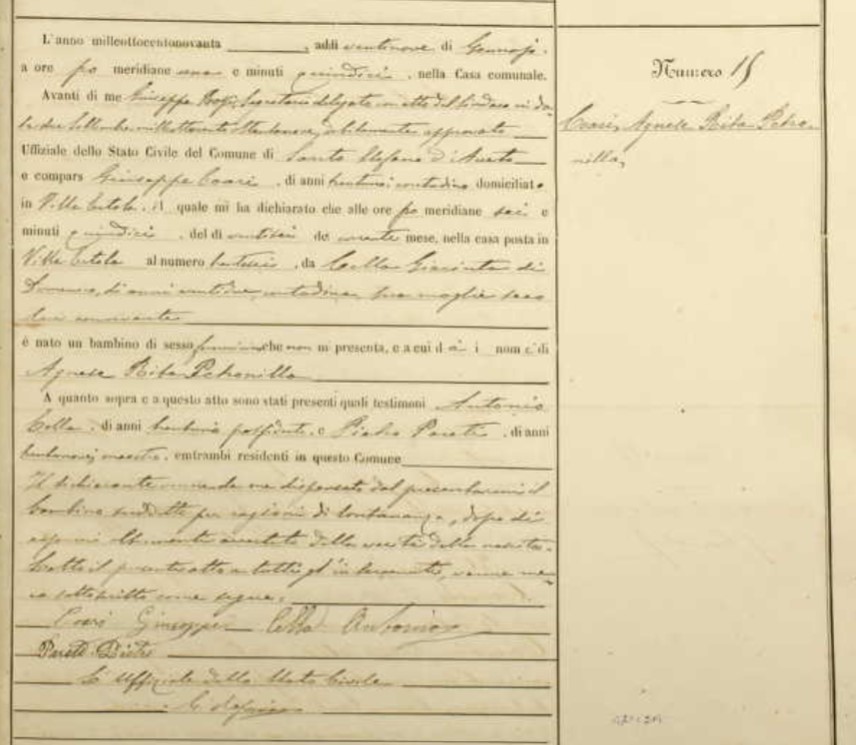 L'anno milleottocentonovanta, addi ventinove di Gennajo.
a ore po meridiane una e minuti quindici, nella Casa comunale.
Avanti di me Giuseppe Segretario delegato con atto del Sindaco in da-
ta due millottocento ottantanove, debitamente approvato
Uffiziale dello Stato Civile del Comune di Santo Stefano d'Aveto
e compars Giuseppe Coari, di anni contadino domiciliato
in Villa il quale mi ha dichiarato che alle ore po meridiane sei e
minuti quindici, del di ventisei del corrente mese, nella casa posta in
Villa al numero, da Cella Giacinta di
Domenico, di anni ventidue, contadina, sua moglie seco
lui convivente
è nato un bambino di sesso femminino che non mi presenta, e a cui dà i nomi di
Agnese Rita Petronilla
A quanto sopra e a questo atto sono stati presenti quali testimoni Antonio
Cella, di anni possidente, e Pietro di anni
maestro, emtrambi residenti in questo Comune
Il dichiarante venne da me dispensato dal presentarmi il
bambino suddetto per ragioni di lontananza, dopo di
essermi altrimenti accertato della verità della nascita.
Letto il presente atto a tutti gl'intervenuti, venne me-
co sottoscritto come segue.
Coari Giuseppe Cella Antonio
Pietro
L'Uffiziale dello Stato Civile
Numero 15
Coari, Agnese Rita Petro-
nilla,